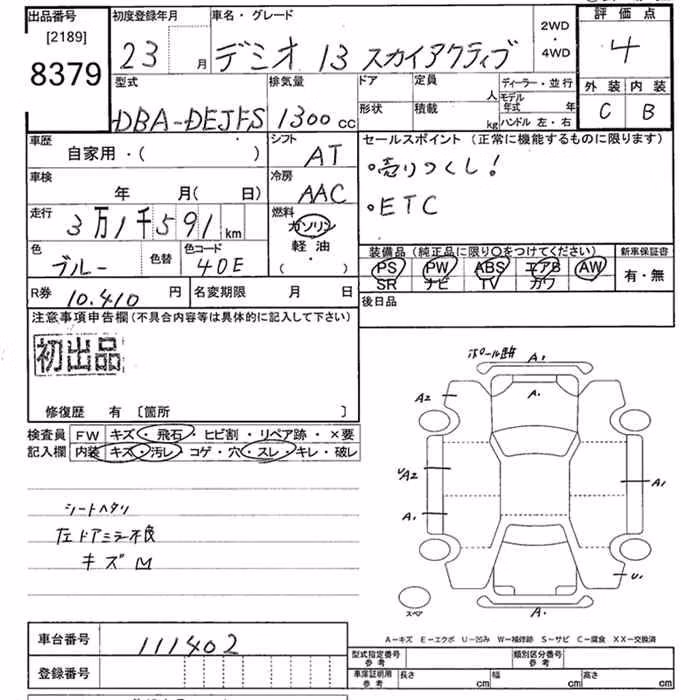 出品番号
[2189]
8379
初度登録年月
23 月
車名・グレード
デミオ 13 スカイアクティブ
2WD
・
4WD
評価点
4
外装 内装
C B
型式
DBA-DEJFS
排気量
1300 cc
ドア
形状
定員 人
積載 kg
ディーラー・並行
モデル年式 年
ハンドル 左・右
車歴
自家用・( )
シフト
AT
車検
年 月( 日)
冷房
AAC
走行
3万1千591 km
燃料
ガソリン
軽油
( ・ )
色
ブルー
色替
色コード
40E
R券 10.410 円
名変期限 月 日
セールスポイント (正常に機能するものに限ります)
・売りつくし!
・ETC
装備品 (純正品に限り○をつけてください)
PS PW ABS エアB AW
SR ナビ TV カワ
新車保証書
有・無
後日品
注意事項申告欄(不具合内容等は具体的に記入して下さい)
初出品
修復歴 有 〔箇所 〕
検査員
記入欄
FW キズ・飛石・ヒビ割・リペア跡・×要
内装 キズ・汚レ・コゲ・穴・スレ・キレ・破レ
シートヘタリ
左ドアミラー不良
キズ
A1
A2
A1
A2
A1
A1
U1
A1
スペア
A－キズ E－エクボ U－凹み W－補修跡 S－サビ C－腐食 XX－交換済
車台番号 111402
登録番号
型式指定番号
参考
類別区分番号
参考
車庫証明用
参考
長さ cm
幅 cm
高さ cm